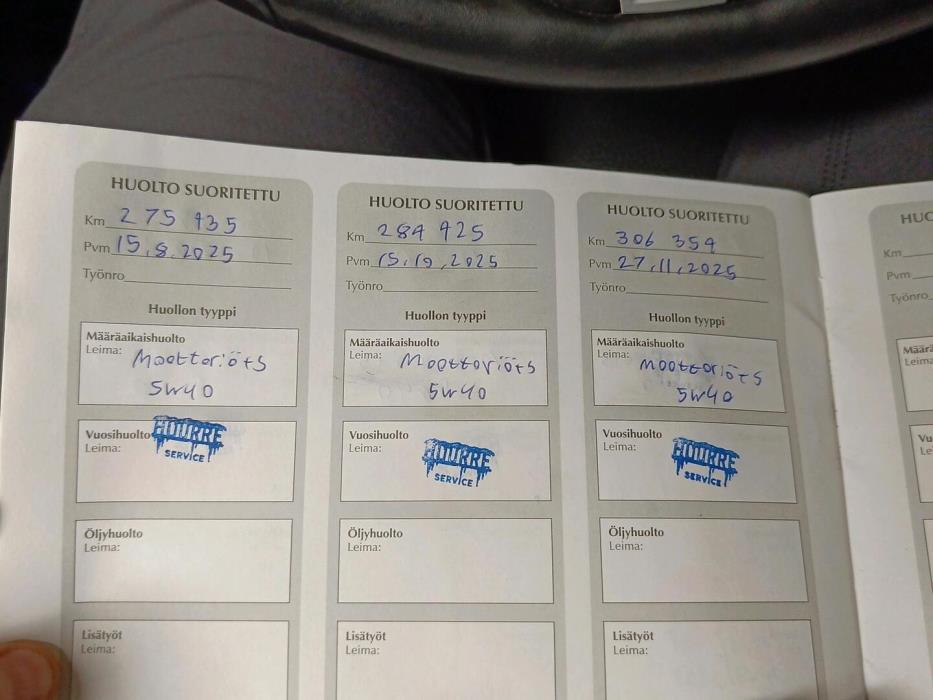 HUOLTO SUORITETTU
Km 275 935
Pvm 15.8.2025
Työnro
Huollon tyyppi
Määräaikaishuolto
Leima: Moottoriöts
5W40
Vuosihuolto
Leima:
HUURRE
SERVICE
Öljyhuolto
Leima:
Lisätyöt
Leima:
HUOLTO SUORITETTU
Km 289 925
Pvm 15.10.2025
Työnro
Huollon tyyppi
Määräaikaishuolto
Leima: Moottoriöts
5W40
Vuosihuolto
Leima:
HUURRE
SERVICE
Öljyhuolto
Leima:
Lisätyöt
Leima:
HUOLTO SUORITETTU
Km 306 359
Pvm 27.11.2025
Työnro
Huollon tyyppi
Määräaikaishuolto
Leima: Moottoriöts
5W40
Vuosihuolto
Leima:
HUURRE
SERVICE
Öljyhuolto
Leima:
Lisätyöt
Leima:
Km
Pvm
Työnro